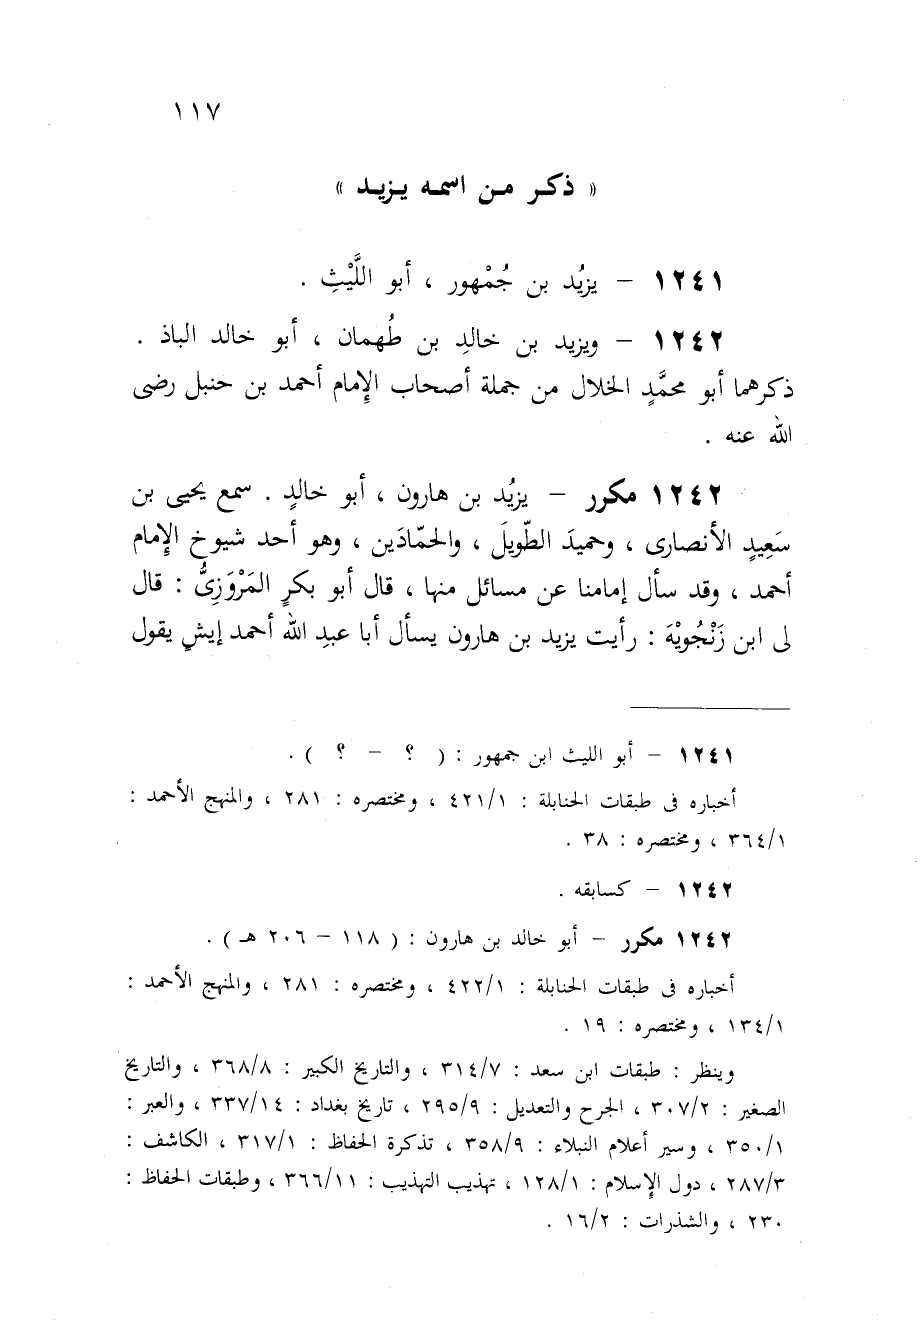 ١١٧
« ذكر من اسمه يزيد »
١٢٤١ – يزيُد بن جُمْهور ، أبو اللَّيْثِ .
١٢٤٢ – ويزيد بن خالدِ بن طُهمان ، أبو خالد الباذ .
ذكرهما أبو محمَّدٍ الخلال من جملة أصحاب الإمام أحمد بن حنبل رضى
الله عنه .
١٢٤٢ مكرر – يزيُد بن هارون ، أبو خالدٍ . سمع يحيى بن
سَعِيدٍ الأنصارى ، وحميدَ الطّويلَ ، والحمّادَين ، وهو أحد شيوخ الإمام
أحمد ، وقد سأل إمامنا عن مسائل منها ، قال أبو بكرٍ المَرْوَزِىُّ : قال
لى ابن زَنْجُويْهَ : رأيت يزيد بن هارون يسأل أبا عبدِ الله أحمد إيشٍ يقول
١٢٤١ – أبو الليث ابن جمهور : ( ؟ – ؟ ) .
أخباره فى طبقات الحنابلة : ٤٢١/١ ، ومختصره : ٢٨١ ، والمنهج الأحمد :
٣٦٤/١ ، ومختصره : ٣٨ .
١٢٤٢ – كسابقه .
١٢٤٢ مكرر – أبو خالد بن هارون : ( ١١٨ – ٢٠٦ هـ ) .
أخباره فى طبقات الحنابلة : ٤٢٢/١ ، ومختصره : ٢٨١ ، والمنهج الأحمد :
١٣٤/١ ، ومختصره : ١٩ .
وينظر : طبقات ابن سعد : ٣١٤/٧ ، والتاريخ الكبير : ٣٦٨/٨ ، والتاريخ
الصغير : ٣٠٧/٢ ، الجرح والتعديل : ٢٩٥/٩ ، تاريخ بغداد : ٣٣٧/١٤ ، والعبر :
٣٥٠/١ ، وسير أعلام النبلاء : ٣٥٨/٩ ، تذكرة الحفاظ : ٣١٧/١ ، الكاشف :
٢٨٧/٣ ، دول الإسلام : ١٢٨/١ ، تهذيب التهذيب : ٣٦٦/١١ ، وطبقات الحفاظ :
٢٣٠ ، والشذرات : ١٦/٢ .